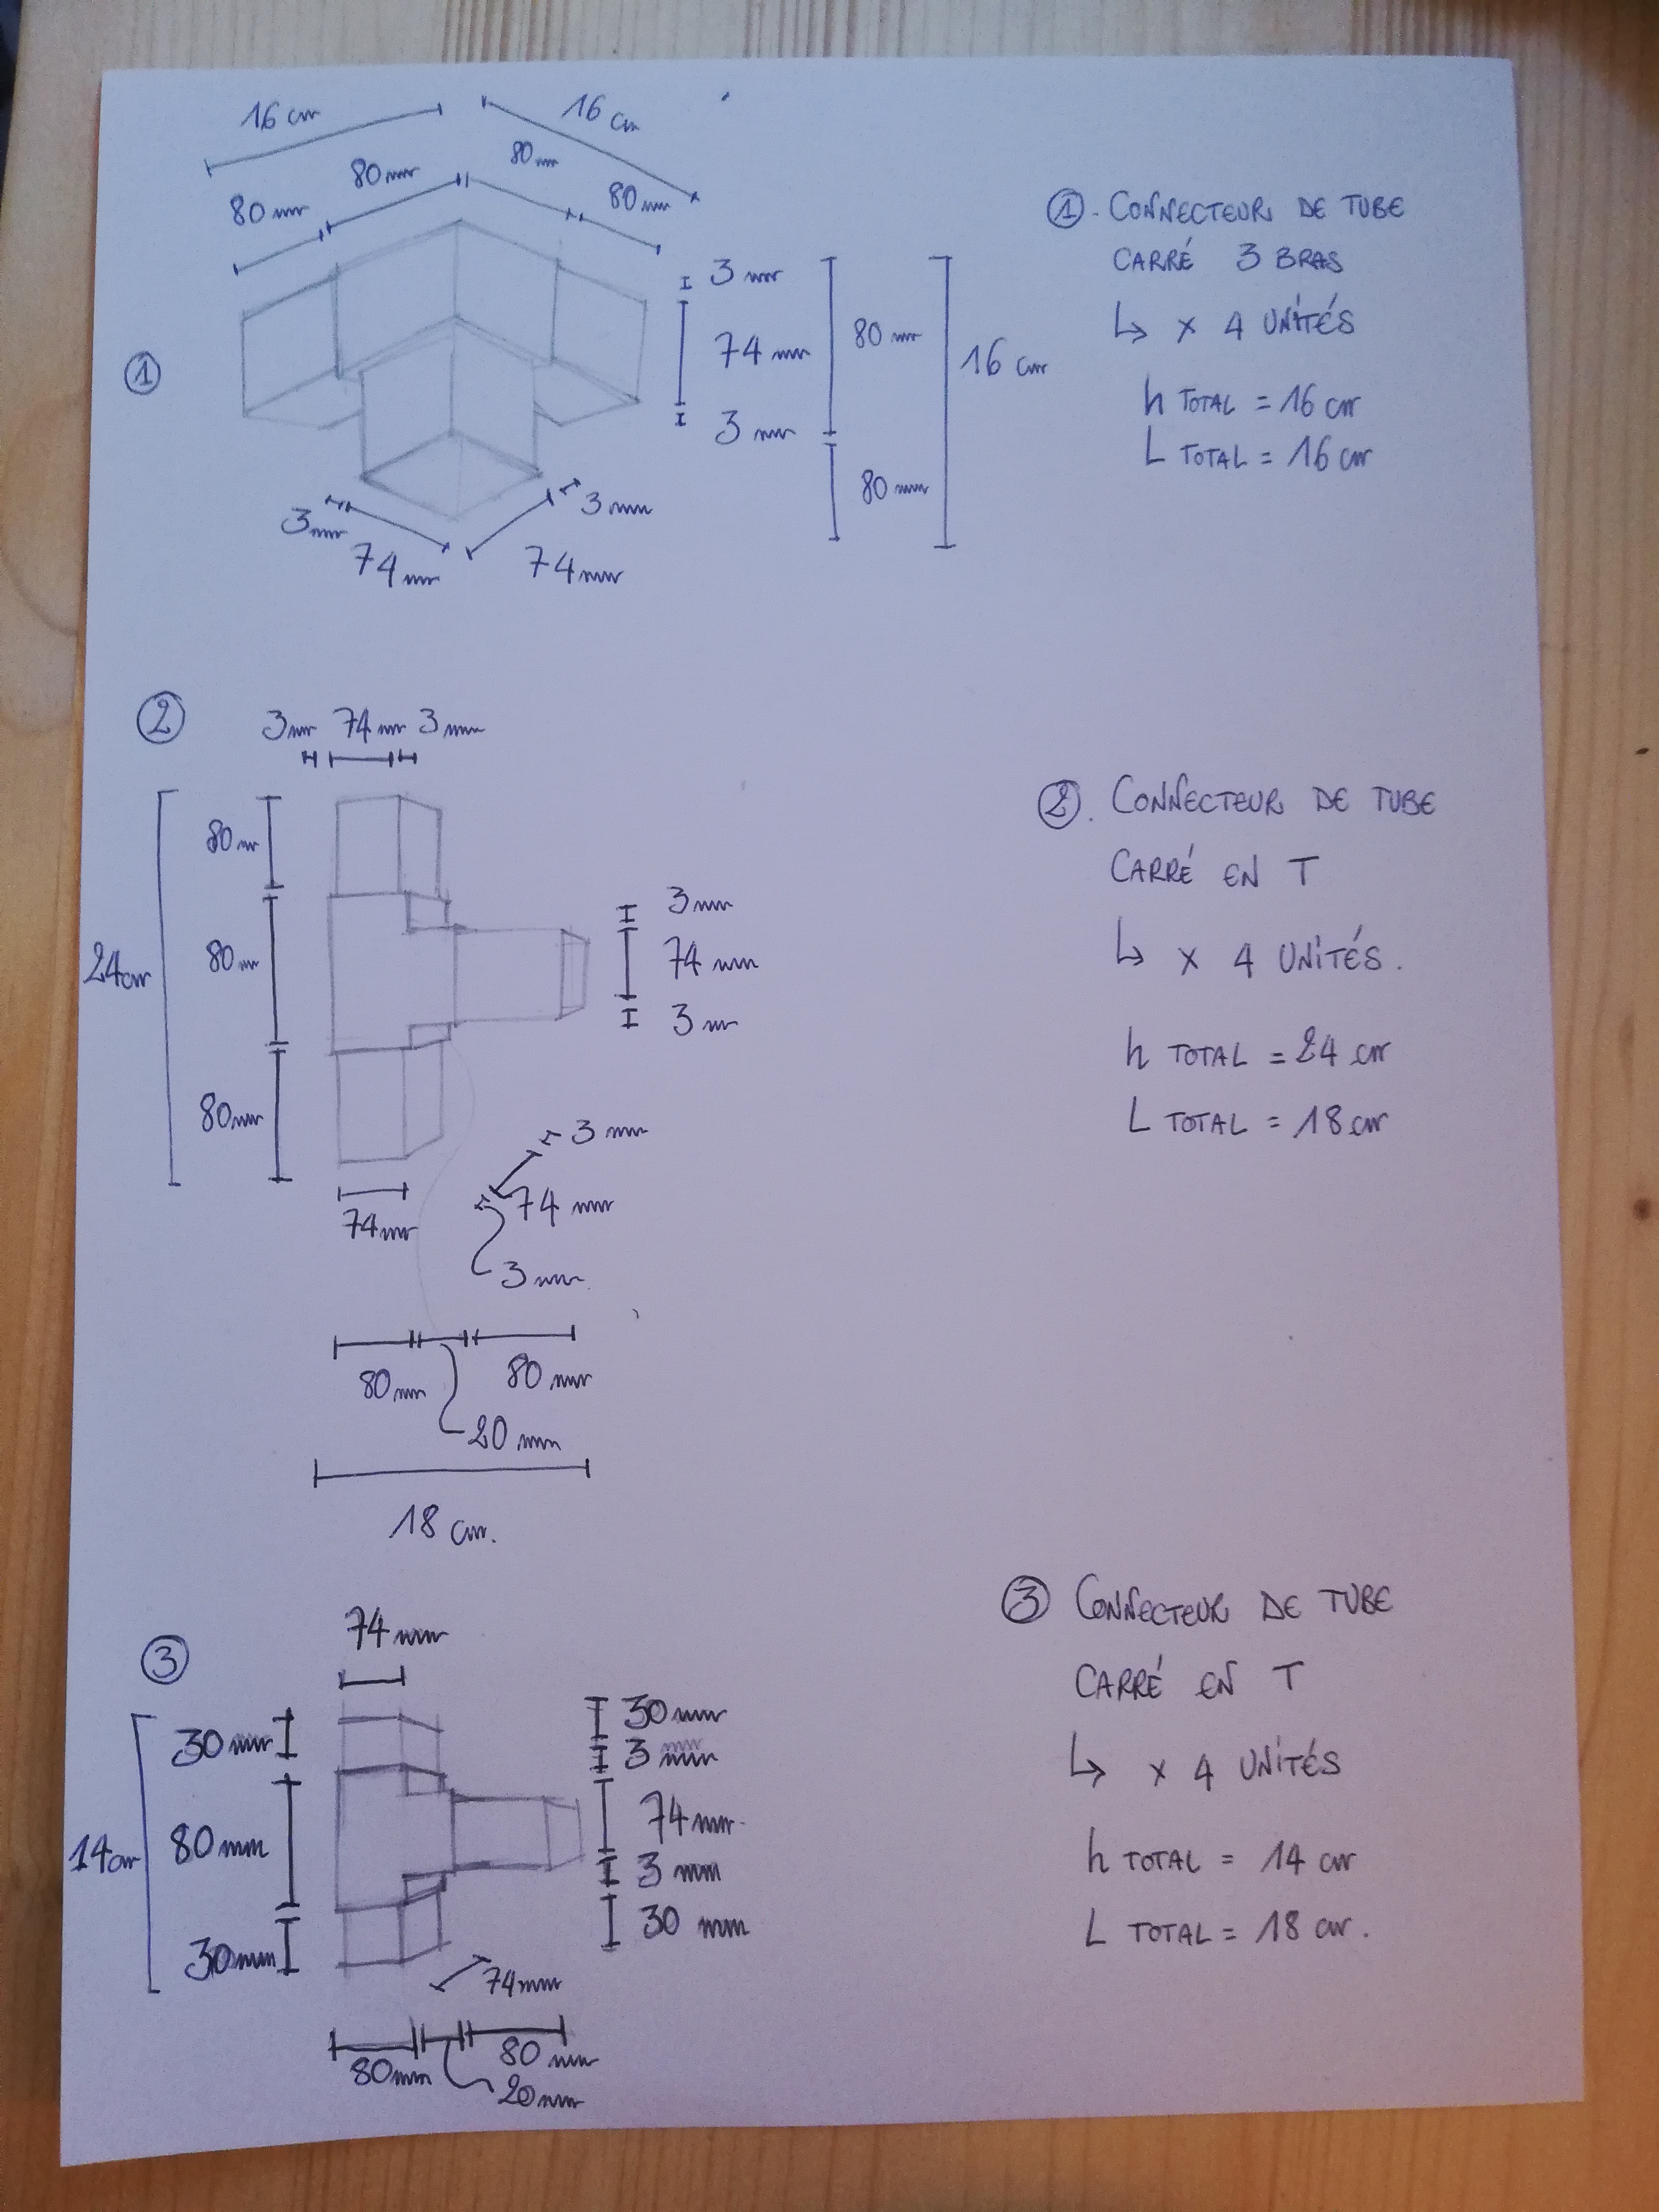 16 cm
16 cm
80 mm
80 mm
80 mm
80 mm
① . CONNECTEUR DE TUBE
CARRÉ 3 BRAS
↳ x 4 UNITÉS
h TOTAL = 16 cm
L TOTAL = 16 cm
①
3 mm
74 mm
3 mm
80 mm
80 mm
16 cm
3 mm
74 mm
3 mm
74 mm
②
3 mm 74 mm 3 mm
80 mm
80 mm
80 mm
24 cm
3 mm
74 mm
3 mm
② . CONNECTEUR DE TUBE
CARRÉ EN T
↳ x 4 UNITÉS.
h TOTAL = 24 cm
L TOTAL = 18 cm
74 mm
3 mm
74 mm
3 mm.
80 mm
80 mm
20 mm
18 cm.
③
74 mm
30 mm
80 mm
30 mm
14 cm
30 mm
3 mm
74 mm
3 mm
30 mm
③ CONNECTEUR DE TUBE
CARRÉ EN T
↳ x 4 UNITÉS
h TOTAL = 14 cm
L TOTAL = 18 cm.
74 mm
80 mm
80 mm
20 mm